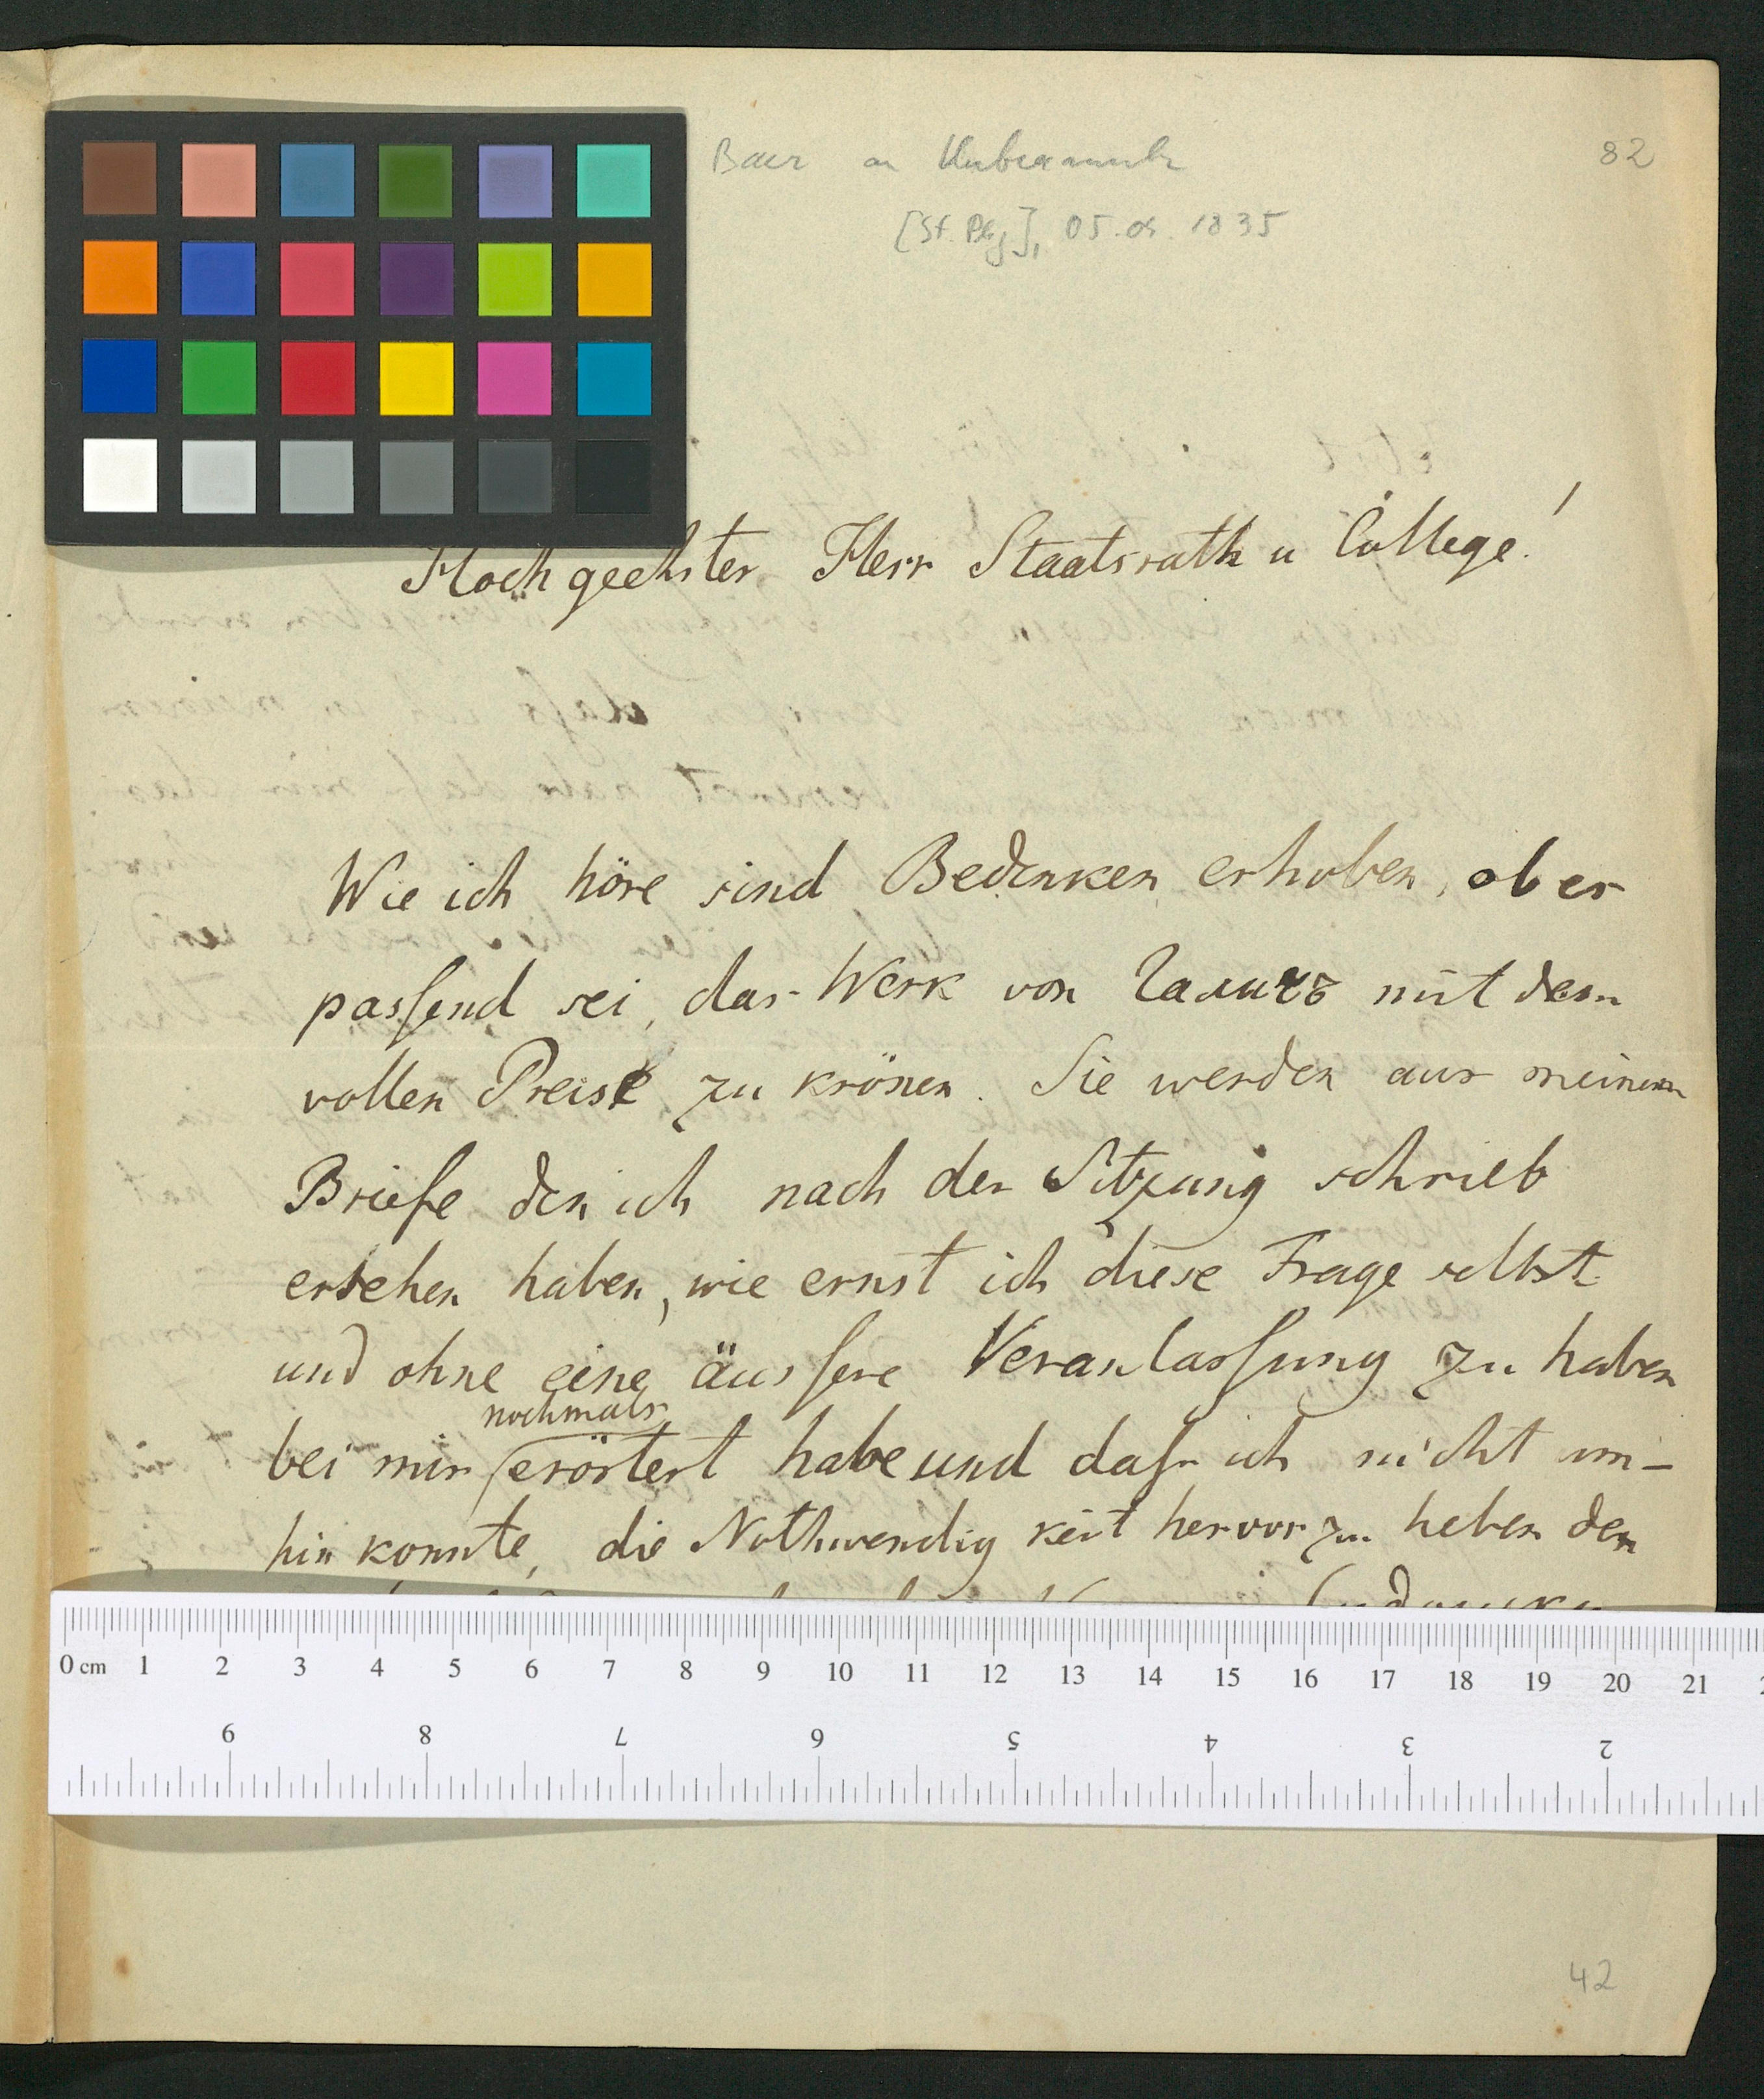 Baer an Unbekannt
82
[St. Pbg], 05.04.1835
Hochgeehrter Herr Staatsrath u College!
Wie ich höre sind Bedenken erhoben, ob er
passend sei, das Werk von Галичъ mit dem
vollen Preise zu krönen. Sie werden aus meinem
Briefe den ich nach der Sitzung schrieb
ersehen haben, wie ernst ich diese Frage selbst
und ohne eine äussere Veranlassung zu haben
nochmals
bei mir erörtert habe und dass ich nicht um-
hin konnte, die Nothwendigkeit hervorzu heben den
0 cm 1 2 3 4 5 6 7 8 9 10 11 12 13 14 15 16 17 18 19 20 21
9 8 7 6 5 4 3 2
42